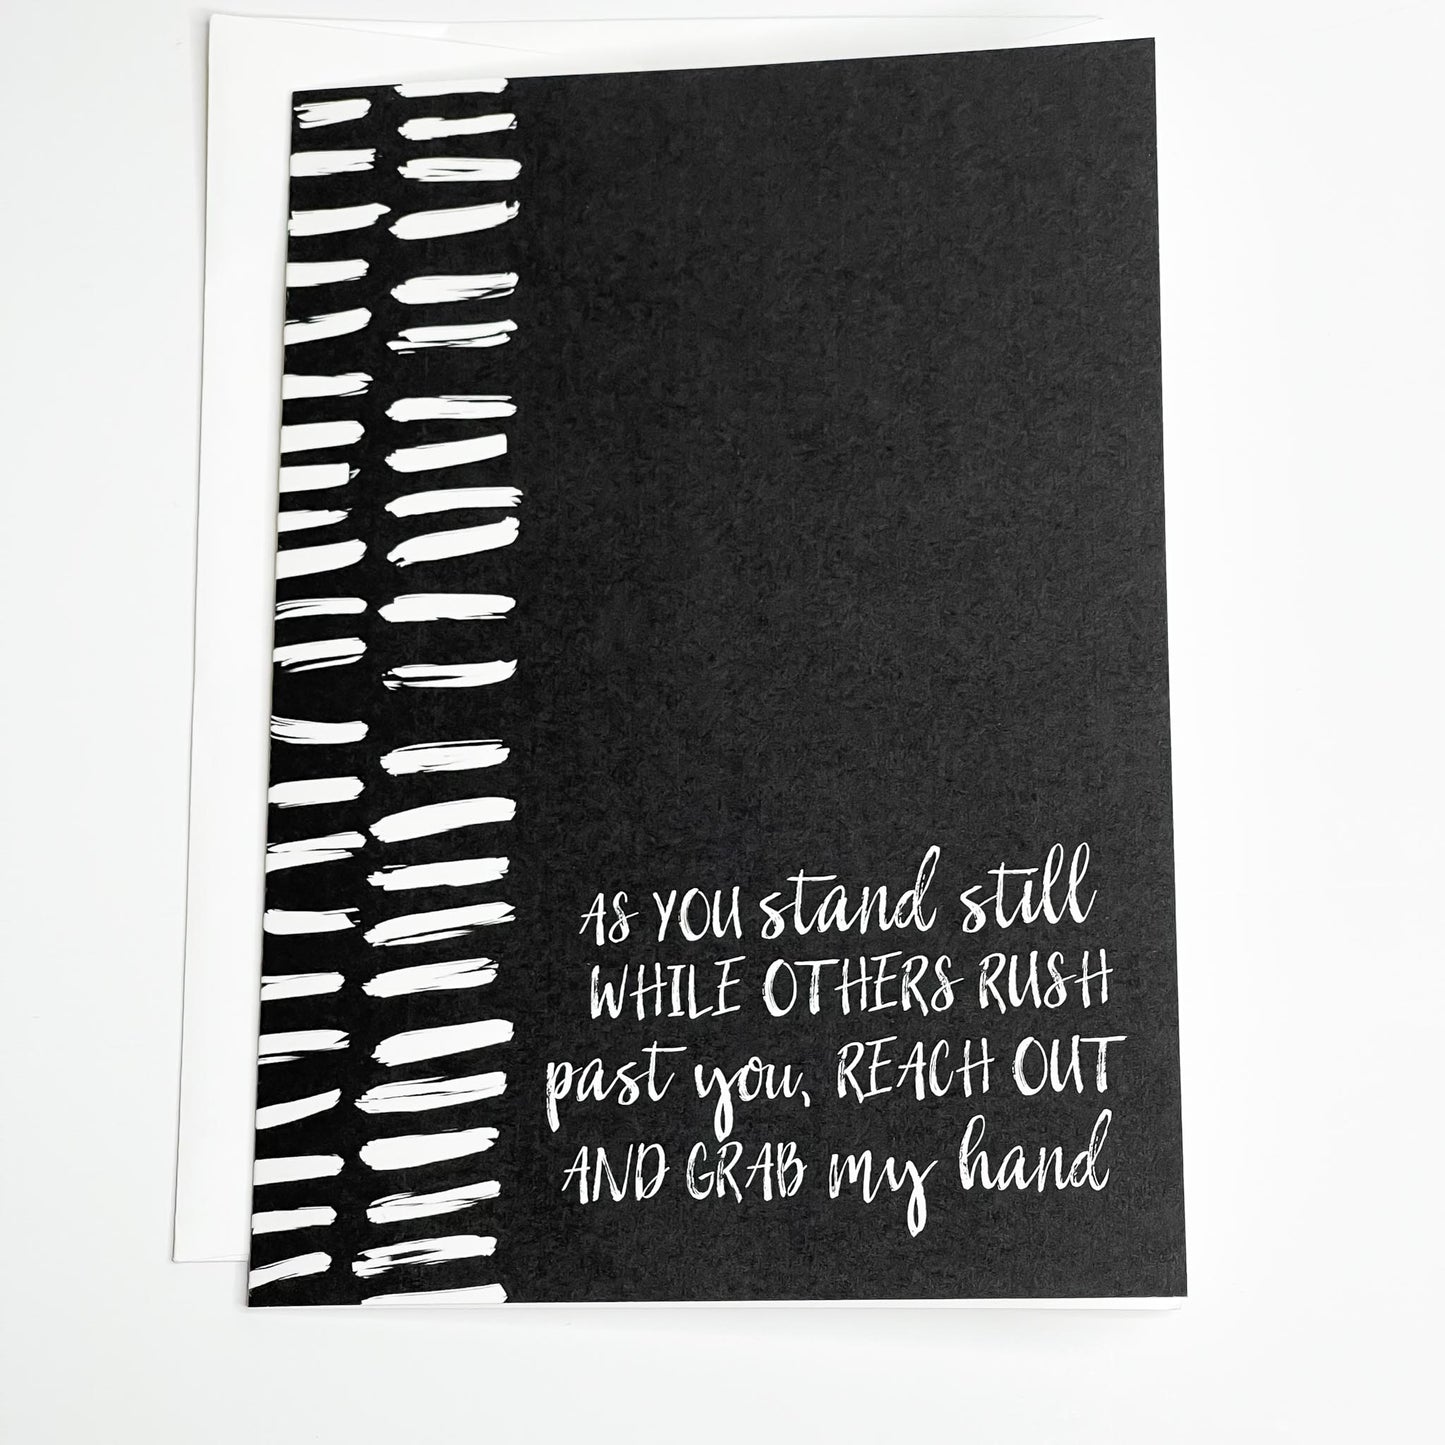 AS YOU stand still
WHILE OTHERS RUSH
past you, REACH OUT
AND GRAB my hand